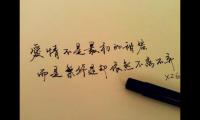 爱情不是最初的甜蜜
而是繁华退却依然不离不弃